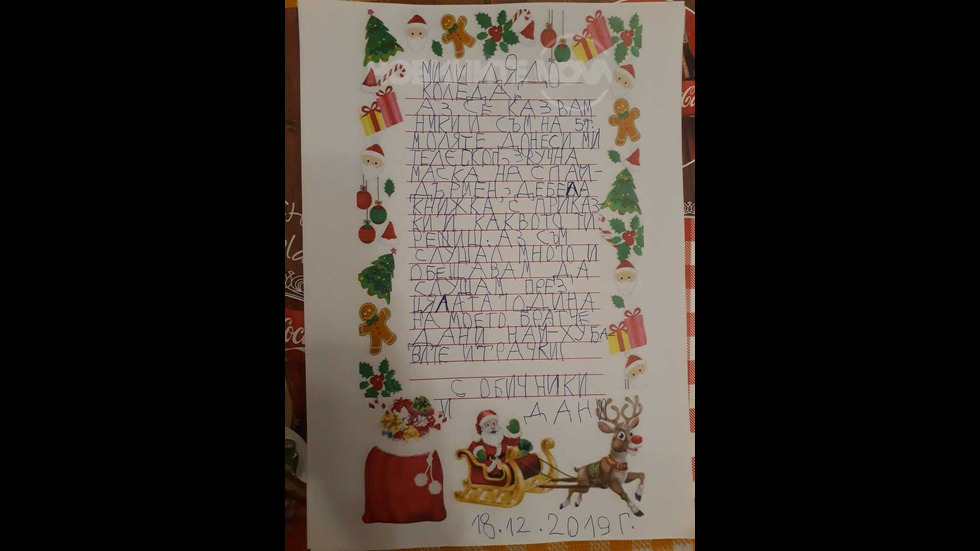 МИЛИ ДЯДО
КОЛЕДА,
АЗ СЕ КАЗВАМ
НИКИ И СЪМ НА 5Г.
МОЛЯТЕ ДОНЕСИ МИ
ТЕЛЕСКОП, ЗВУЧНА
МАСКА НА СПАЙ-
ДЪРМЕН, ДЕБЕЛА
КНИЖКА С ПРИКАЗ-
КИ И КАКВОТО ТИ
РЕШИШ. АЗ СЪМ
СЛУШАЛ МНОГО И
ОБЕЩАВАМ ДА
СЛУШАМ ПРЕЗ
ЦЯЛАТА ГОДИНА
НА МОЕТО БРАТЧЕ
ДАНИ НАЙ-ХУБА-
ВИТЕ ИГРАЧКИ!
С ОБИЧ НИКИ
И ДАНИ
18.12.2019Г.